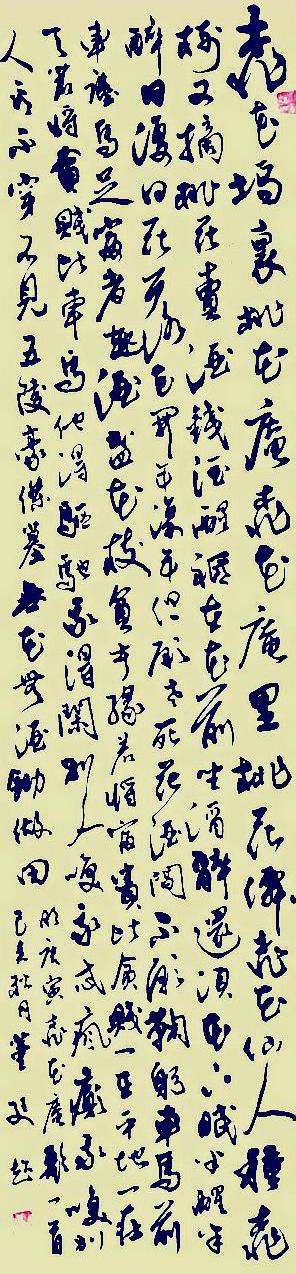 桃花塢裏桃花庵桃花庵里桃花仙桃花仙人種桃
樹又摘桃花賣酒錢酒醒祗在花前坐酒醉還須花下眠半醒半
醉日復日花落花開年復年但願老死花酒間不願鞠躬車馬前
車塵馬足富者趣酒盞花枝貧者緣若將富貴比貧賤一在平地一在
天若將貧賤比車馬他得驅馳我得閑別人笑我忒瘋癲我笑別
人看不穿不見五陵豪傑墓無花無酒鋤做田
明唐寅桃花庵歌一首
己亥秋月董